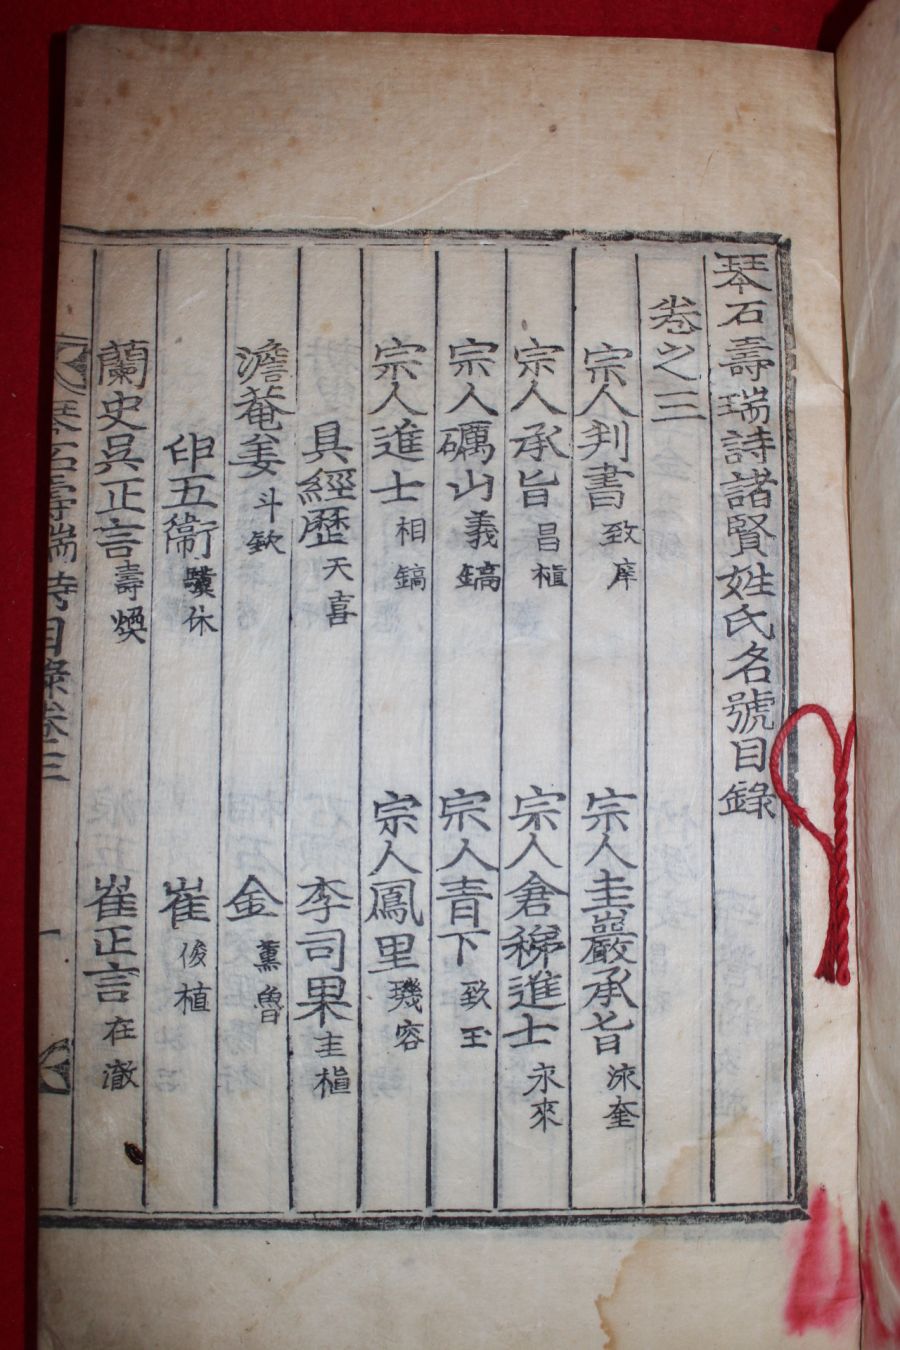 琴石壽瑞詩諸賢姓氏名號目錄
卷之三
宗人判書致庠 宗人圭巖承旨泳奎
宗人承旨昌楨 宗人倉稊進士永來
宗人礪山義鎬 宗人青下致玉
宗人進士相鎬 宗人鳳里璣容
具經歷天喜 李司果圭楨
澹菴姜斗欽 金薰魯
申五衛驥休 崔俊植
蘭史吳正言壽煥 崔正言在澈
琴石壽瑞詩目錄卷三 一